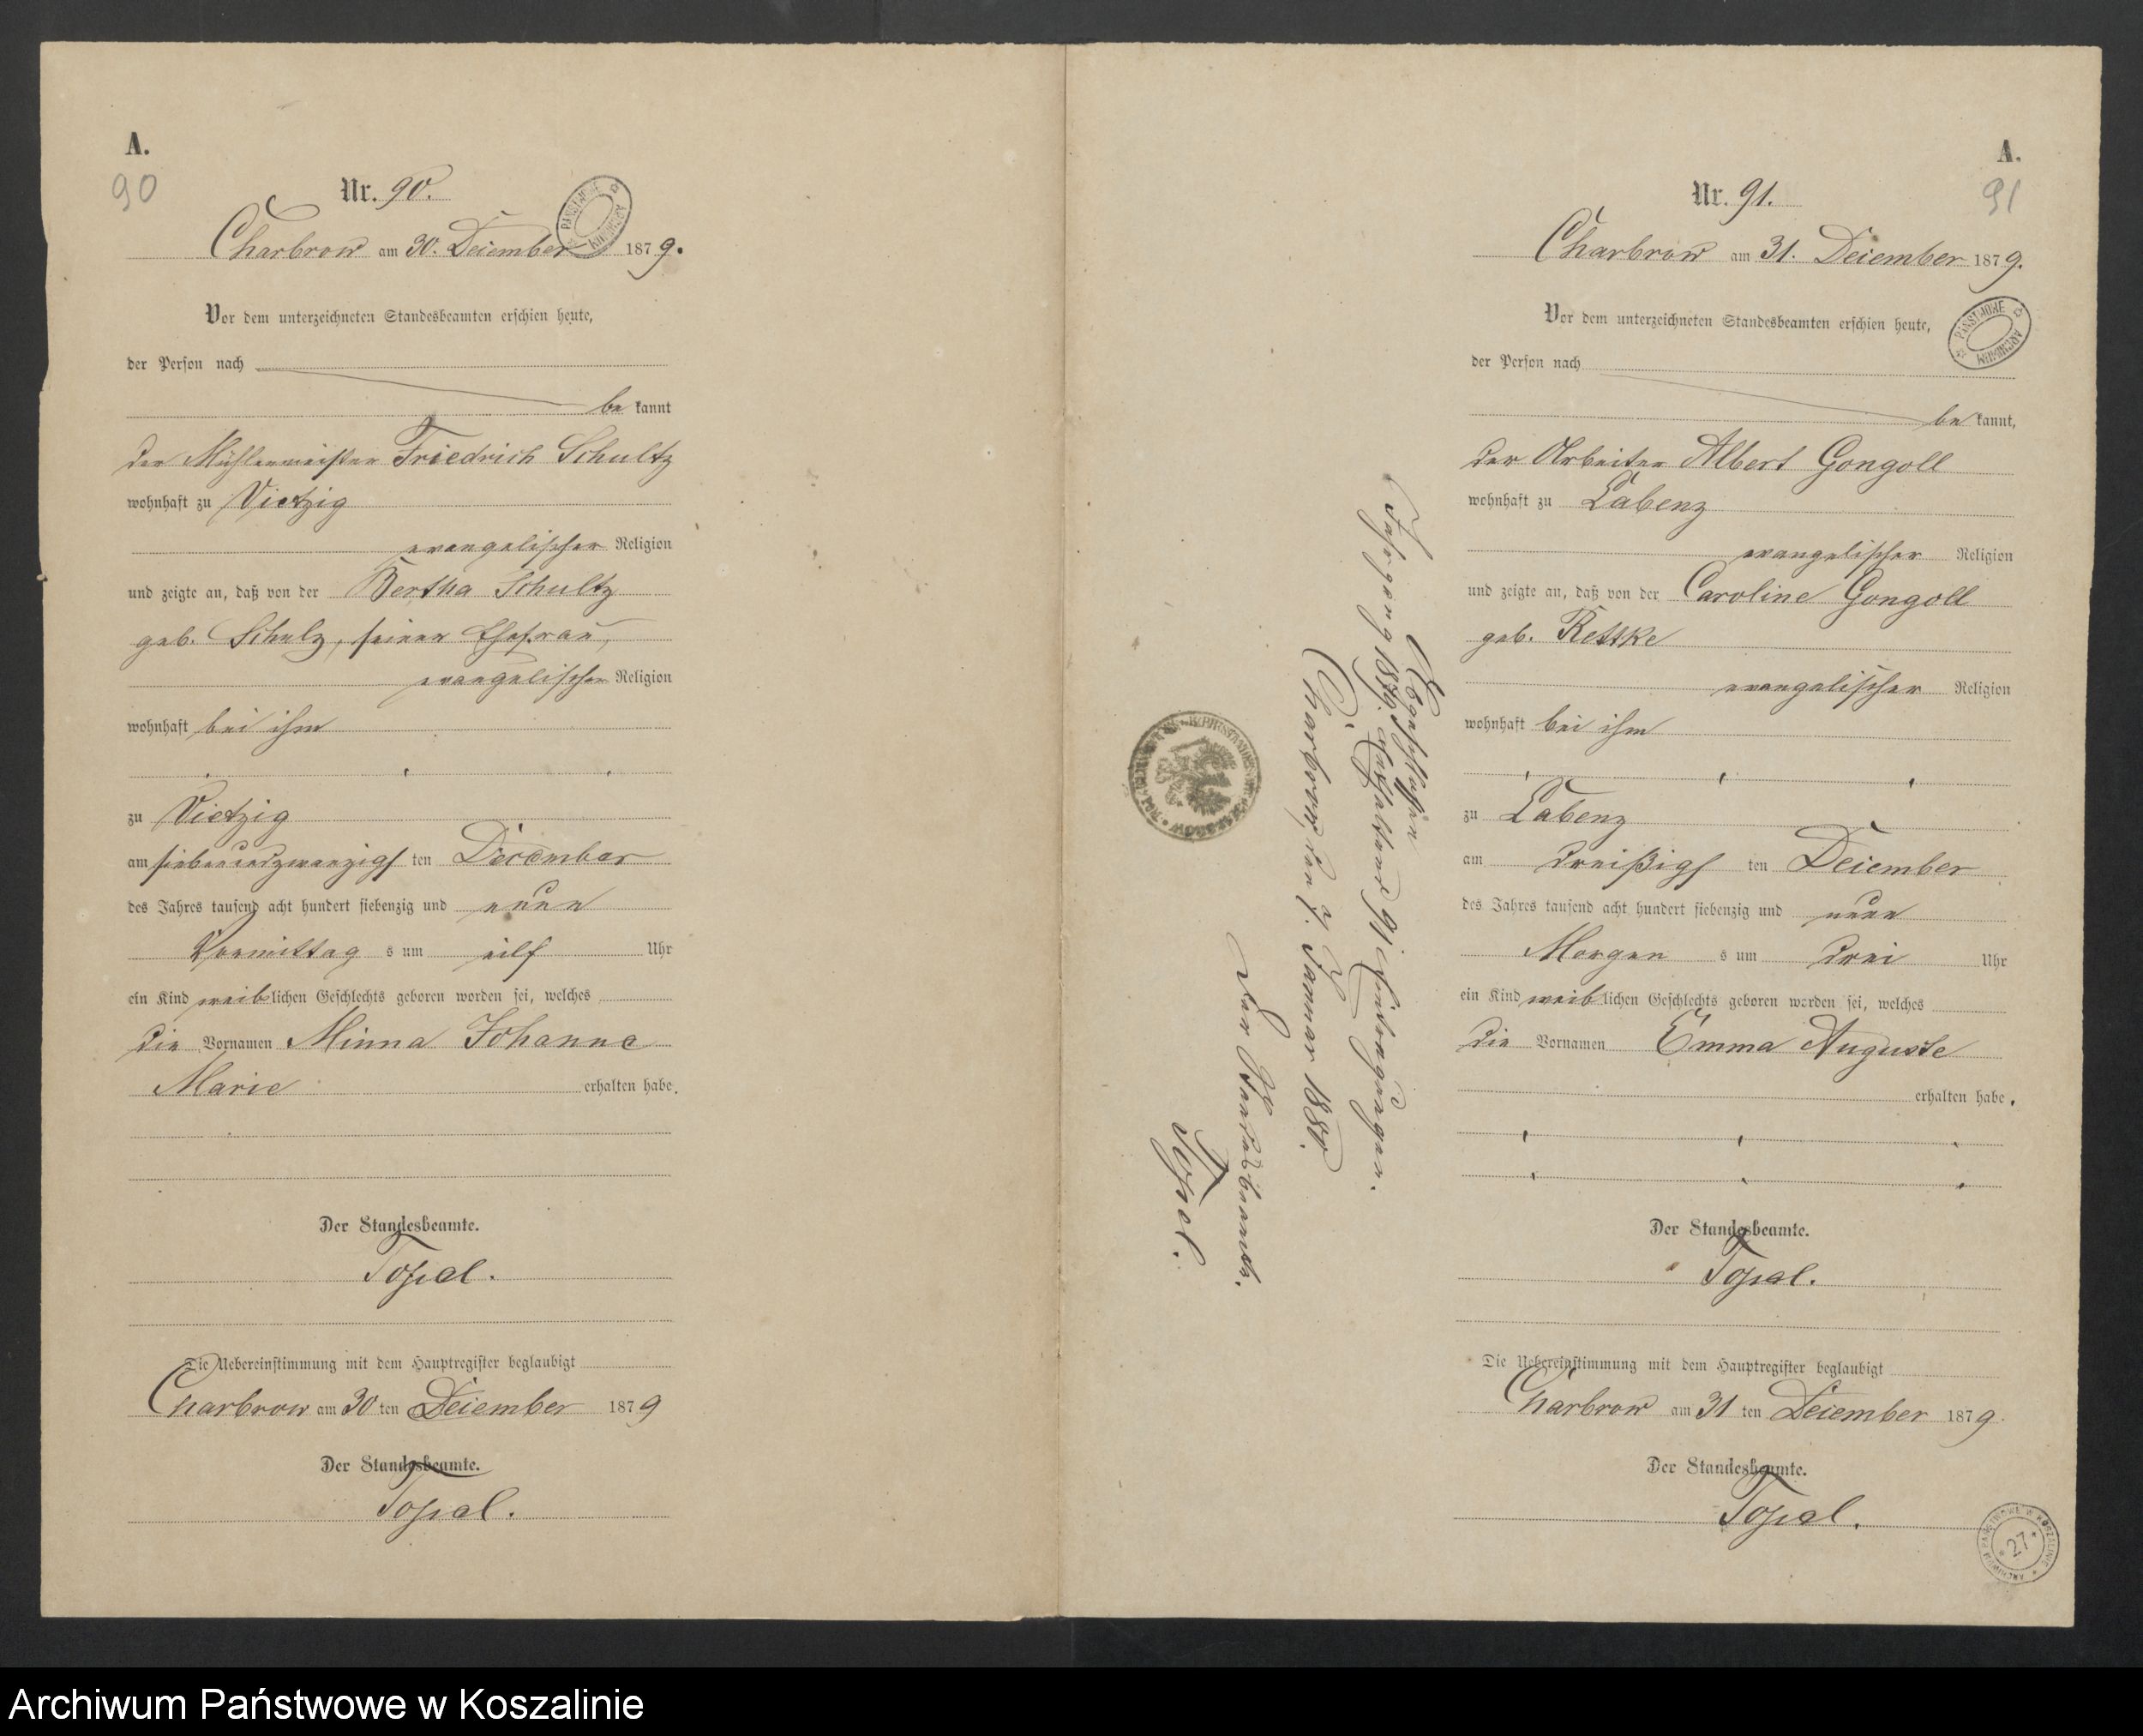 A.
90
Nr. 90.
Charbrow am 30. Dezember 1879.
PANSTWOWE ARCHIWUM
Vor dem unterzeichneten Standesbeamten erschien heute,
der Person nach
be kannt
der Mühlenmeister Friedrich Schultz
wohnhaft zu Vietzig
evangelischer Religion
und zeigte an, daß von der Bertha Schultz
geb. Schulz, seiner Ehefrau,
evangelischer Religion
wohnhaft bei ihm
zu Vietzig
am siebenundzwanzigs ten December
des Jahres tausend acht hundert siebenzig und neun
Vormittag s um eilf Uhr
ein Kind weiblichen Geschlechts geboren worden sei, welches
die Vornamen Minna Johanne
Marie erhalten habe.
Der Standesbeamte.
Topel.
Die Uebereinstimmung mit dem Hauptregister beglaubigt
Charbrow am 30 ten Dezember 1879
Der Standesbeamte.
Topel.
Abgeschlossen
Jahrgang 1879. enthaltend 91 Eintragungen.
Charbrow, den 2. Januar 1880.
Der Standesbeamte.
Topel.
A.
91
Nr. 91.
Charbrow am 31. Dezember 1879.
PANSTWOWE ARCHIWUM
Vor dem unterzeichneten Standesbeamten erschien heute,
der Person nach
be kannt,
der Arbeiter Albert Gongoll
wohnhaft zu Labenz
evangelischer Religion
und zeigte an, daß von der Caroline Gongoll
geb. Rettke
evangelischer Religion
wohnhaft bei ihm
zu Labenz
am dreißigs ten Dezember
des Jahres tausend acht hundert siebenzig und neun
Morgen s um drei Uhr
ein Kind weiblichen Geschlechts geboren worden sei, welches
die Vornamen Emma Auguste
erhalten habe.
Der Standesbeamte.
Topel.
Die Uebereinstimmung mit dem Hauptregister beglaubigt
Charbrow am 31 ten Dezember 1879.
Der Standesbeamte.
Topel.
ARCHIWUM PAŃSTWOWE W KOSZALINIE
27
Archiwum Państwowe w Koszalinie